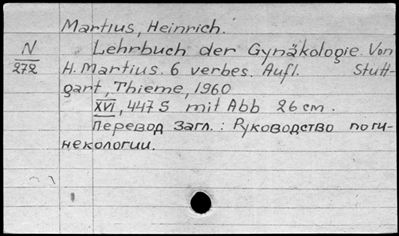 Martius, Heinrich.
N Lehrbuch der Gynäkologie. Von
272 H. Martius. 6 verbes. Aufl. Stutt-
gart, Thieme, 1960
XVI, 447 S mit Abb 26 cm.
Перевод загл.: Руководство по ги-
некологии.